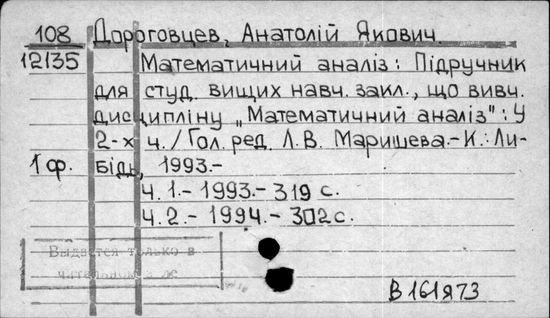 108 Дороговцев, Анатолій Якович.
12135 Математичний аналіз: Підручник
для студ. вищих навч. закл., що вивч.
дисципліну „Математичний аналіз": У
2-х ч./Гол. ред. Л.В. Маришева.-К.: Ли-
1 ф. бідь, 1993.-
Ч.1.- 1993.- 319 с.
Ч.2.- 1994.- 302 с.
Выдается только в
читальном
В161973